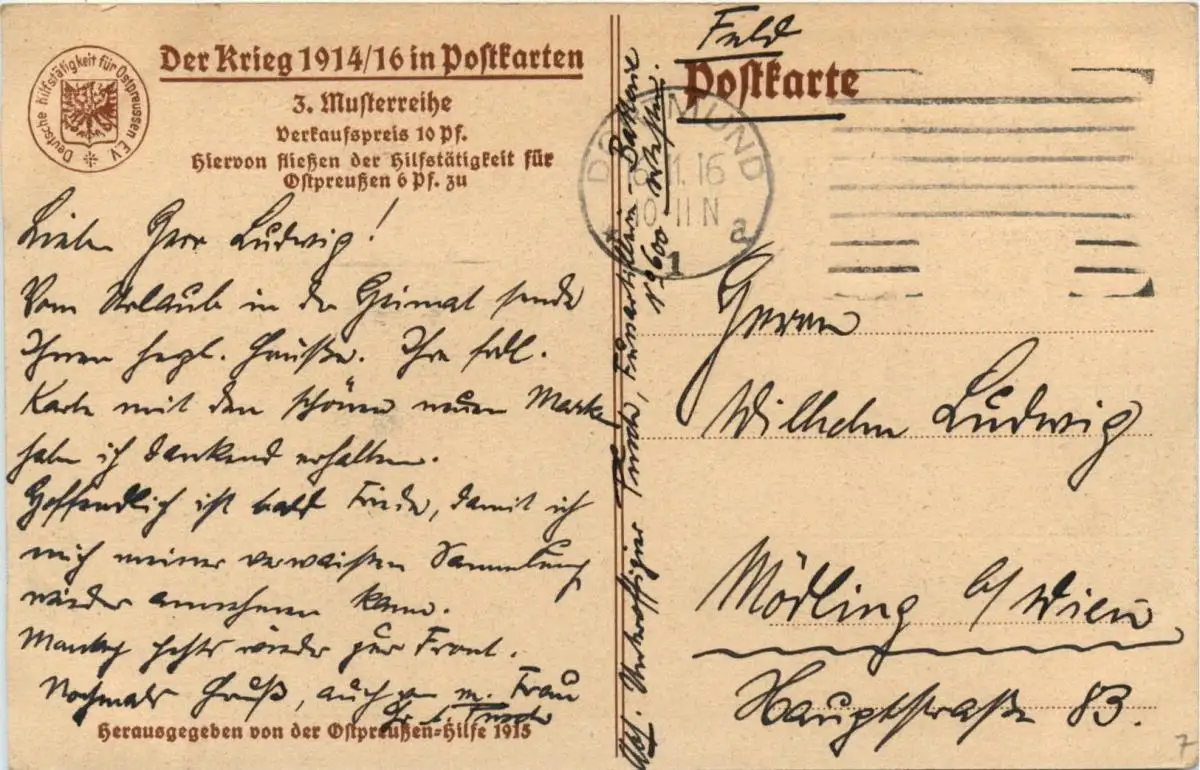 Deutsche Hilfstätigkeit für Ostpreussen E.V.
Der Krieg 1914/16 in Postkarten
3. Musterreihe
Verkaufspreis 10 Pf.
Hiervon fließen der Hilfstätigkeit für
Ostpreußen 6 Pf. zu
Lieber Herr Ludwig!
Vom Urlaub in der Heimat sende
Ihnen herzl. Grüße. Ihre frdl.
Karte mit den schönen neuen Marken
habe ich dankend erhalten.
Hoffendlich ist bald Friede, damit ich
mich meiner verwaisten Sammlung
wieder annehmen kann.
Montag gehts wieder zur Front.
Nochmals Gruß, auch von m. Frau
Herausgegeben von der Ostpreußen-Hilfe 1915
Abs. Unteroffizier Fussartillerie-Batterie
No 600
Feld
Postkarte
DORTMUND
11.16
10-11 N
1
a
Herrn
Wilhelm Ludwig
Mödling b/ Wien
Hauptstraße 83.
7